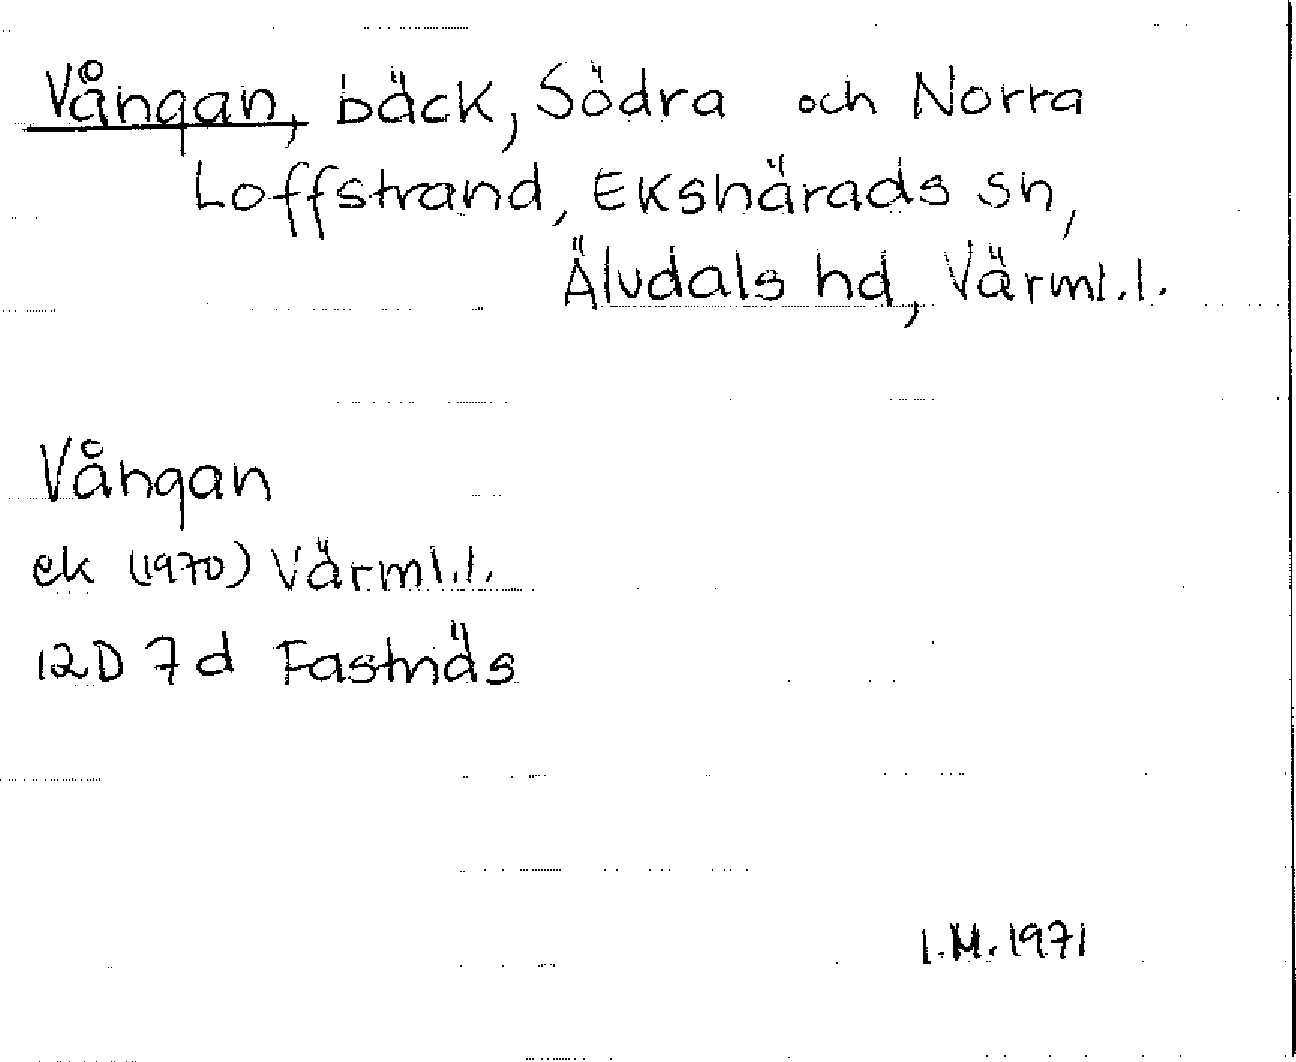 Vångan, bäck, Södra och Norra
Loffstrand, Ekshärads sn,
Älvdals hd, Värml.l.
Vångan
ek (1970) Värml.l.
12D 7d Fastnäs
I.M. 1971